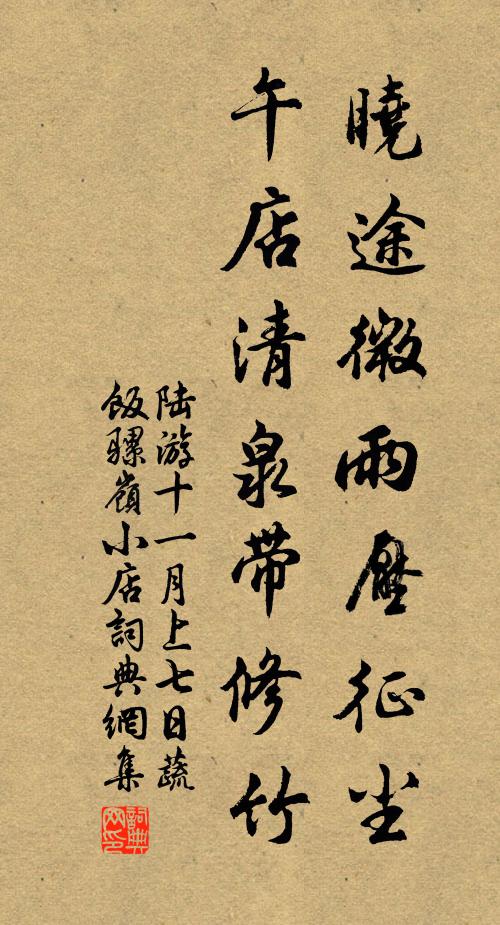 曉途微雨壓征塵
午店清泉帶修竹
陆游十一月上七日蔬
飯騾嶺小店詞典網集
詞典網印